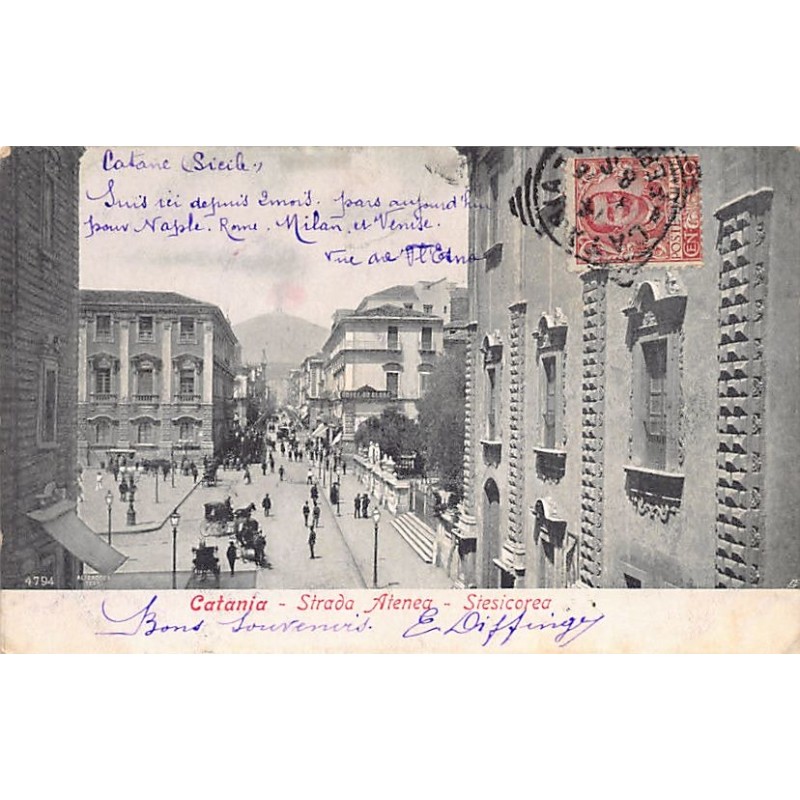 Catane (Sicile)
Suis ici depuis 2 mois. pars aujourd'hui
pour Naple. Rome, Milan, et Venise.
Vue de l'Etna
POSTE
CEN
4794
Catania - Strada Atenea - Stesicorea
Bons Souvenirs. E. Diffinger